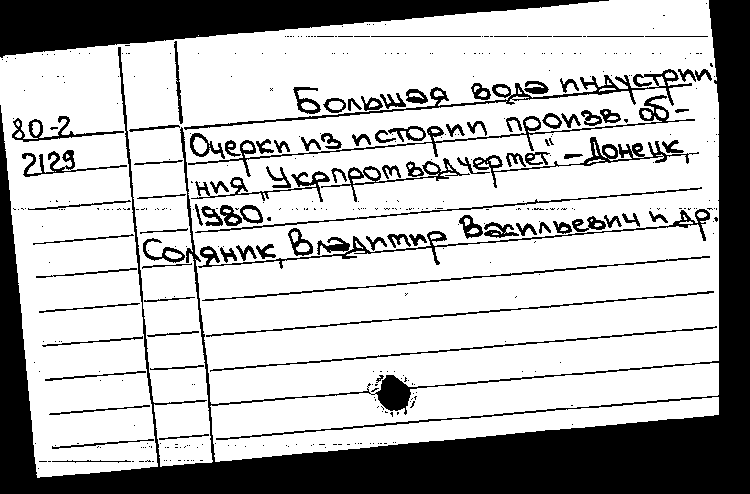 Большая вода индустрии:
80-2
2129
Очерки из истории произв. об-
ния „Укрпромводчермет". - Донецк,
1980.
Соляник, Владимир Васильевич и др.